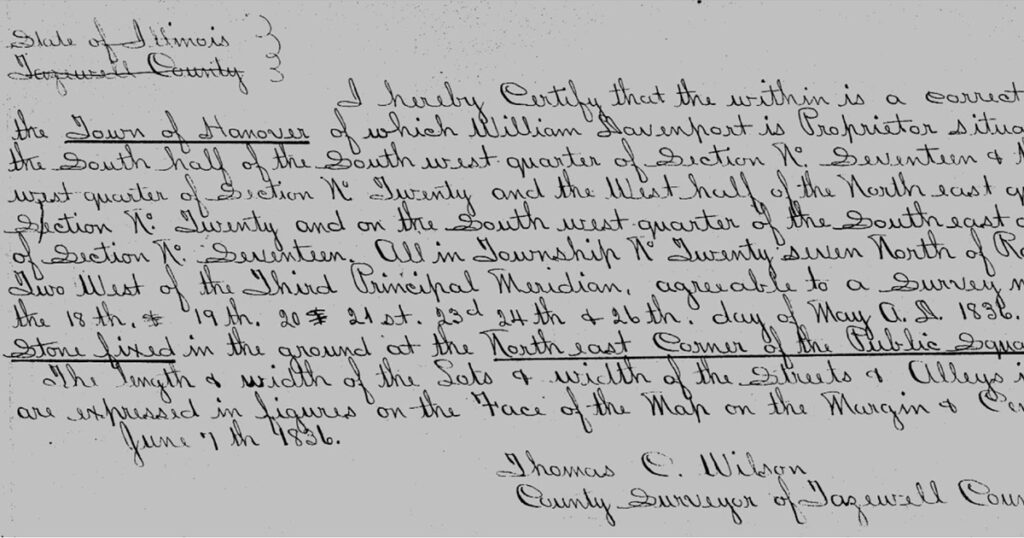 State of Illinois }
Tazewell County }
I hereby Certify that the within is a correct
the Town of Hanover of which William Davenport is Proprietor situa
the South half of the South west quarter of Section No. Seventeen &
west quarter of Section No Twenty and the West half of the North east q
Section No. Twenty and on the South west quarter of the South east q
of Section No. Seventeen. All in Township No Twenty seven North of Ra
Two West of the Third Principal Meridian, agreeable to a Survey m
the 18th. & 19th. 20 & 21st. 23d 24th & 26th. day of May A.D. 1836.
Stone fixed in the ground at the North east Corner of the Public Squa
The length & width of the Lots & width of the Streets & Alleys i
are expressed in figures on the Face of the Map on the Margin & Ce
June 7th 1836.
Thomas C. Wilson
County Surveyor of Tazewell Coun